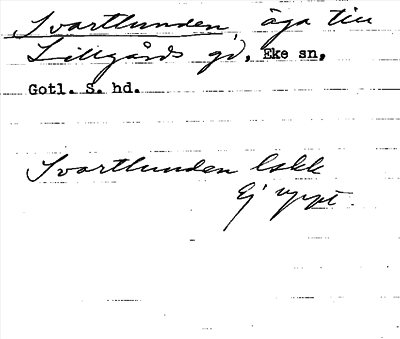 Svartlunden, äga till
Lillgårds gd, Eke sn,
Gotl. S. hd.
Svartlunden lskk
Ej uppt.